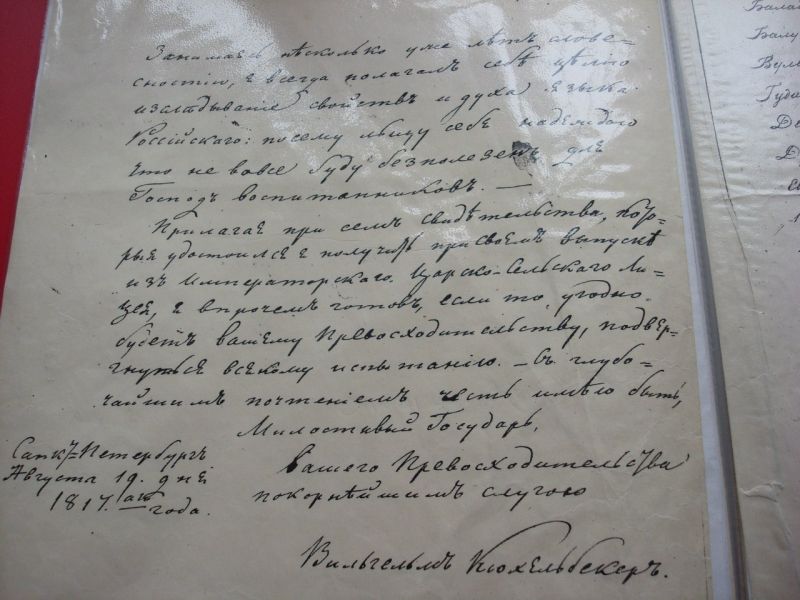 Занимаясь нѣсколько уже лѣтъ слове-
сностію, я всегда полагалъ себѣ цѣлію
изслѣдываніе свойствъ и духа языка
Россійскаго: посему льщу себѣ надеждою
что не вовсе буду безполезенъ для
Господъ воспитанниковъ. —
Прилагая при семъ свидѣтельства, кото-
рыя удостоился я получить при своемъ выпускѣ
изъ Императорскаго Царско-Сельскаго Ли-
цея, я впрочемъ готовъ, если то угодно
будетъ вашему Превосходительству, подвер-
гнуться всякому испытанію. — Съ глубо-
чайшимъ почтеніемъ честь имѣю быть,
Милостивый Государь,
вашего Превосходительства
покорнѣйшимъ слугою
Санктъ-Петербургъ
Августа 19. дня
1817.аго года.
Вильгельмъ Кюхельбекеръ.